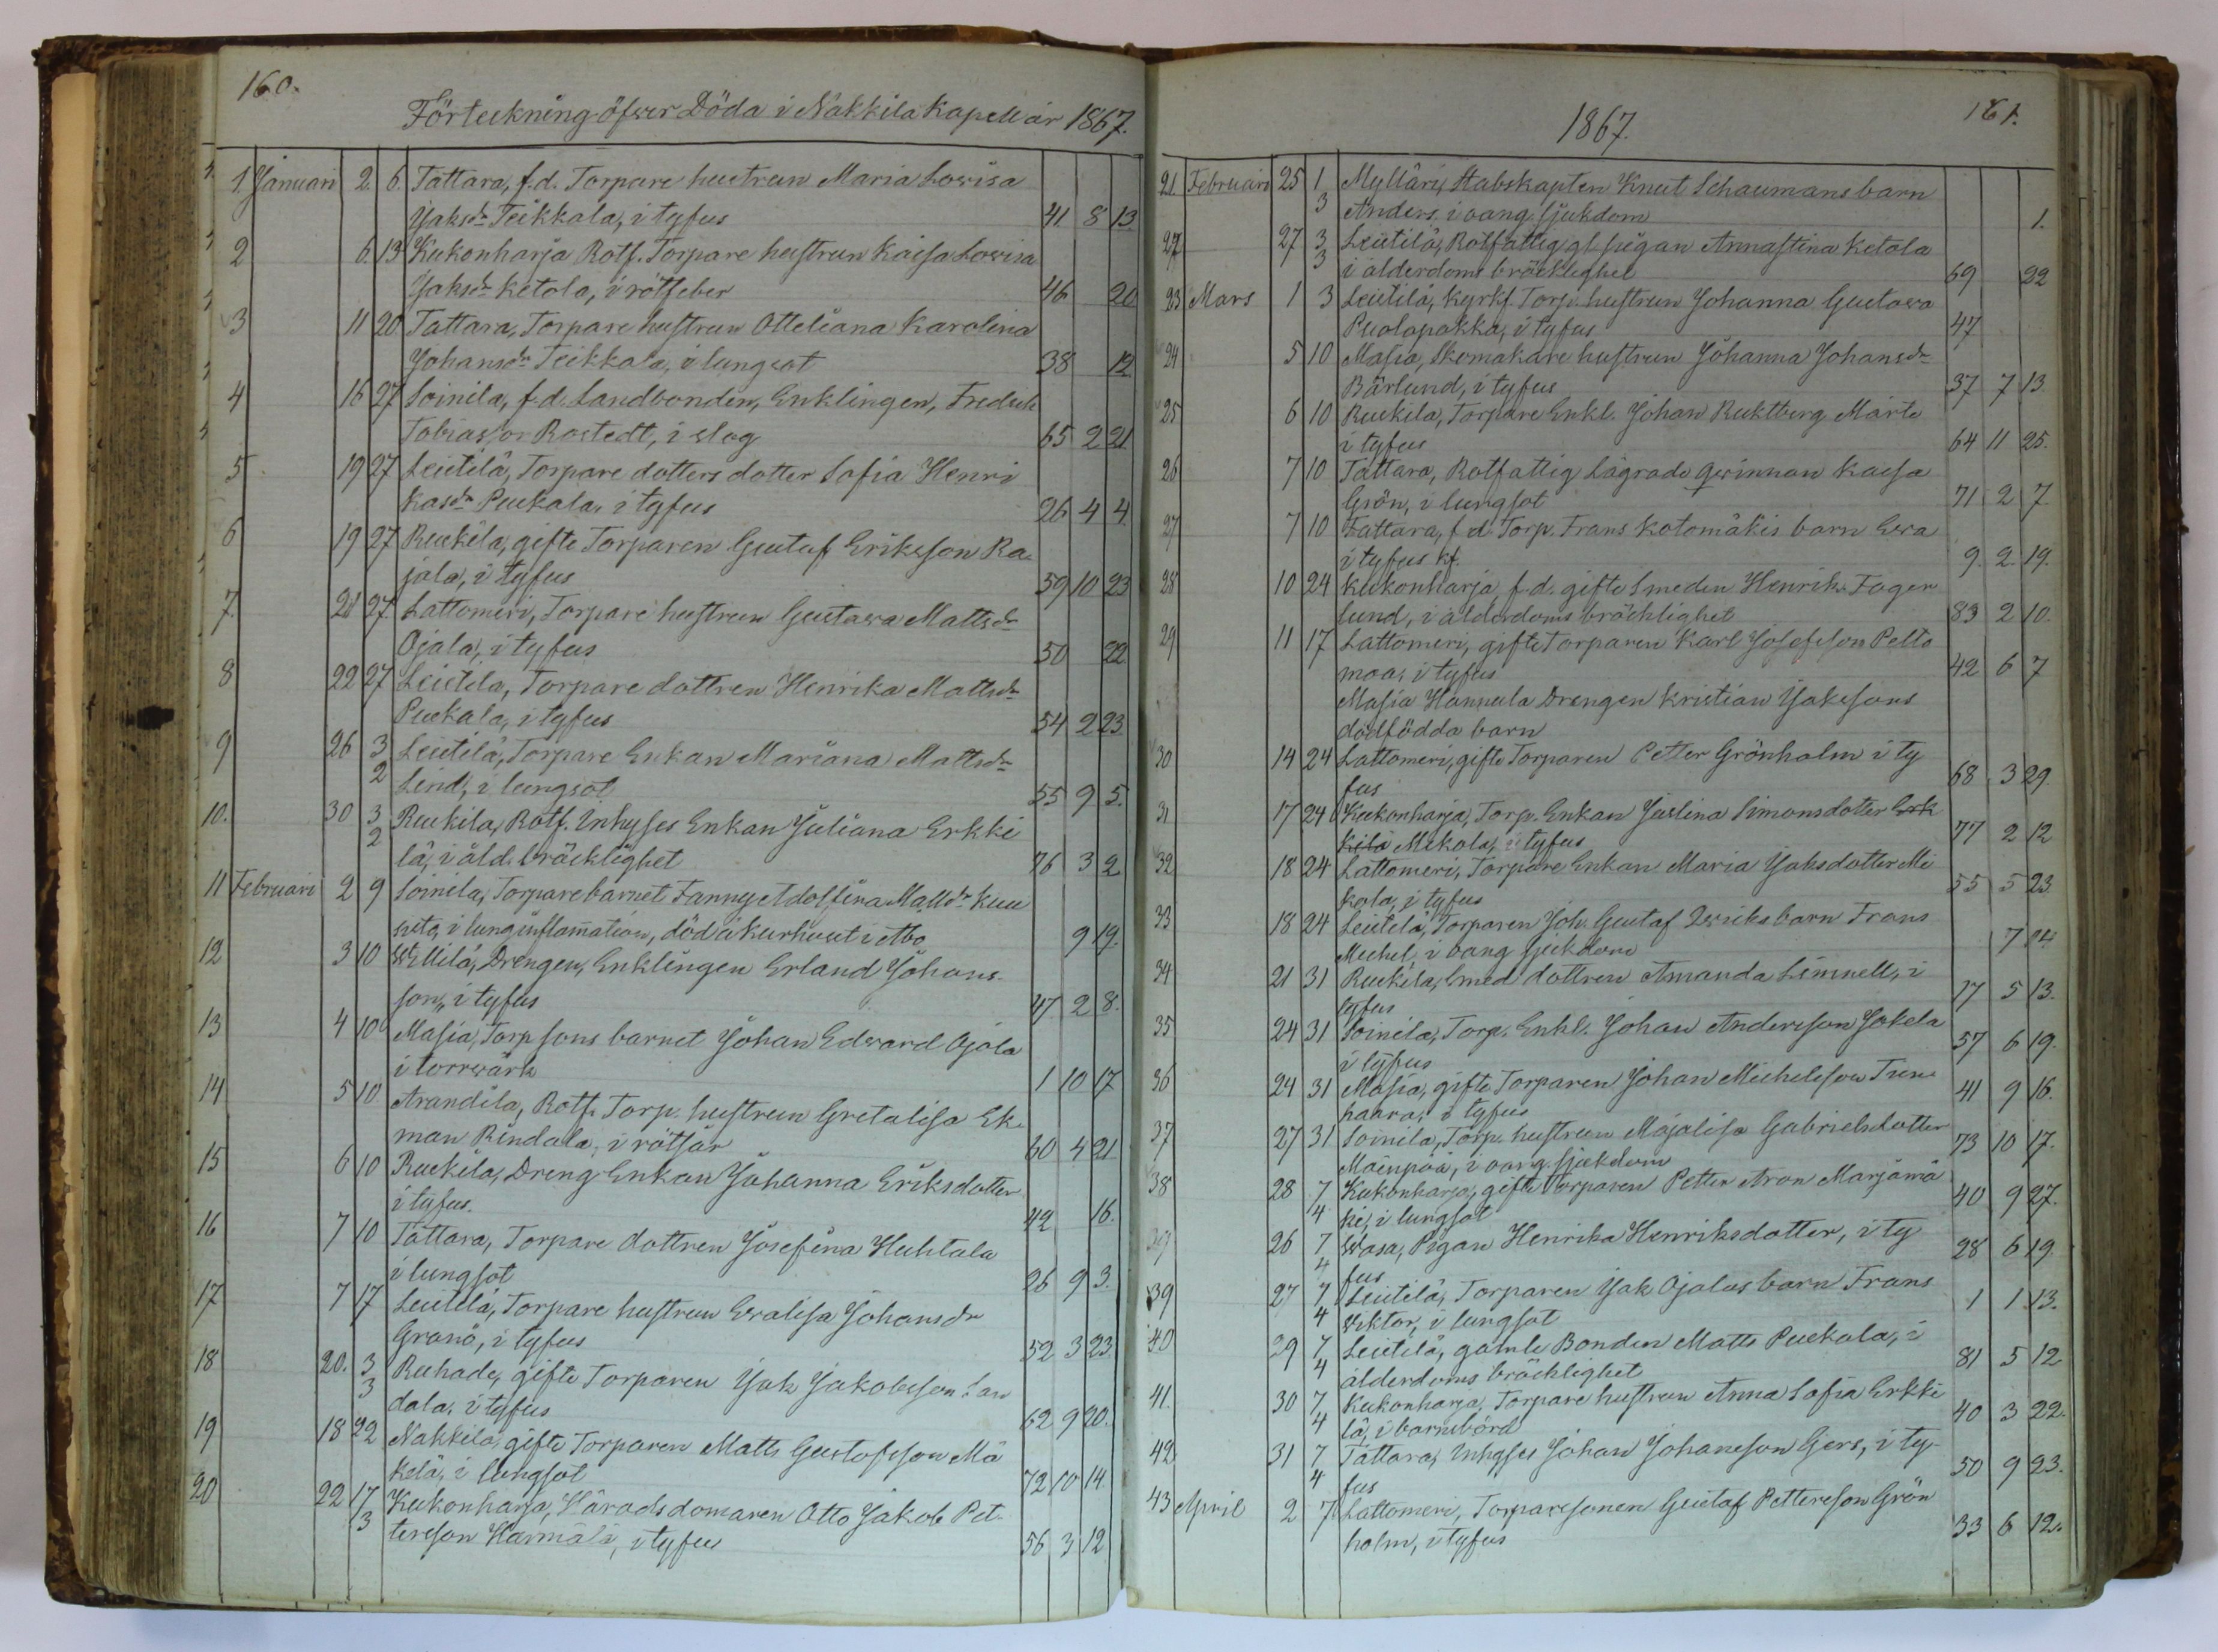 160.
Förteckning öfwer Döda i Nakkila Kapell år 1867.
1. Januari 2 6 Tattara, f.d. Torpare hustrun Maria Lowisa
Jaksdr Teikkala, i tyfus 41 8 13
2 6 13 Kukonharja Rotf. Torpare hustrun Kaisa Lowisa
Jaksdr Ketola, i rötfeber 46 20
3 11 20 Tattara, Torpare hustrun Otteliana Karolina
Johansdr Teikkala, i lungsot 38 12
4 16 27 Soinila, f.d. Landbonden, Enklingen, Fredrik
Tobiasson Rostedt, i slag 65 2 21
5 19 27 Leistilä, Torpare dotters dotter Sofia Henri
kasdr Puckala, i tyfus 26 4 4
6 19 27 Ruskila, gifte Torparen Gustaf Eriksson Ra
jala, i tyfus 59 10 23
7. 21 27 Lattomeri, Torpare hustrun Gustawa Mattsdr
Ojala, i tyfus 50 22
8 22 27 Leistila, Torpare dottren Henrika Mattsdr
Puckala, i tyfus 54 2 23
9 26 3/2 Leistilä, Torpare Enkan Mariana Mattsdr
Lind, i lungsot 55 9 5.
10. 30 3/2 Ruskila, Rotf. Inhyses Enkan Juliana Erkki
lä, i åld. bräcklighet 76 3 2
11 Februari 2 9 Soinila, Torpare barnet Fanny Adolfina Mattsdr Kuu
sito, i lunginflamation, död å kurhuset i Åbo 9 19.
12 3 10 Willilä, Drengen, Enklingen Erland Johans
son, i tyfus 47 2 8.
13 4 10 Masia, Torp sons barnet Johan Edward Ojala
i torrwärk 1 10 17
14 5 10 Arandila, Rotf. Torp. hustrun Gretalisa Ek
man Rindala, i rötsår 60 4 21
15 6 10 Ruskila, Dreng Enkan Johanna Eriksdotter
i tyfus. 42 16.
16 7 10 Tattara, Torpare dottren Josefina Huhtala
i lungsot 26 9 3.
17 7 17 Leistilä, Torpare hustrun Evalisa Johansdr
Granö, i tyfus 52 3 23
18 20. 3/3 Ruhade, gifte Torparen Jak Jakobsson Lau
dala, i tyfus 62 9 20.
19 18 22 Nakkila, gifte Torparen Matts Gustafsson Mä
kelä, i lungsot 72 10 14
20 22 17/3 Kukonharja, Häradsdomaren Otto Jakob Pet
tersson Harmala, i tyfus 56 3 12
1867. 161.
21 Februari 25 1/3 Mylläri, Stabskapten Knut Schaumans barn
Anders, i oang. sjukdom 1.
22 27 3/3 Leistilä, Rotfattig gl. pigan Annastina Ketola
i ålderdoms bräcklighet 69 22
23 Mars 1 3 Leistilä, Kyrkf. Torp. hustrun Johanna Gustawa
Puolapakka, i tyfus 47
24 5 10 Masia, Skomakare hustrun Johanna Johansdr
Bärlund, i tyfus 37 7 13
25 6 10 Ruskila, Torpare Enkl. Johan Ruktberg Märte
i tyfus 64 11 25.
26 7 10 Tattara, Rotfattig Lägrade qwinnan Kaisa
Grön, i lungsot 71 2 7
27 7 10 Tattara, f.d. Torp. Frans Kotomäkis barn Ewa
i tyfus kf. 9. 2. 19.
28 10 24 Kukonharja, f.d. gifte Smeden Henrik Fager
lund, i ålderdoms bräcklighet 83 2 10.
29 11 17 Lattomeri, gifte Torparen Karl Josefsson Pelto
moa, i tyfus 42 6 7
Masia Hannula Drengen Kristian Jakssons
dödfödda barn
30 14 24 Lattomeri, gifte Torparen Petter Grönholm i ty
fus 68 3 29.
31 17 24 Kukonharja, Torp. Enkan Justina Simonsdotter Erk
kilä Mikola, i tyfus 77 2 12
32 18 24 Lattomeri, Torpare Enkan Maria Jaksdotter Mi
kola, i tyfus 55 5 23
33 18 24 Leistilä, Torparen Joh. Gustaf Qwiks barn Frans
Michel, i oang sjukdom 7 14
34 21 31 Ruskila, Smed dottren Amanda Limnell, i
tyfus 17 5 13.
35 24 31 Soinila, Torp. Enkl. Johan Andersson Jokela
i tyfus 57 6 19.
36 24 31 Masia, gifte Torparen Johan Michelsson Tuu
haara, i tyfus 41 9 16.
37 27 31 Soinila, Torp. hustrun Majalisa Gabrielsdotter
Mäinpää, i oang. sjukdom 73 10 17.
38 28 7/4 Kukonharja, gifte Torparen Petter Aron Marjamä
ki, i lungsot 40 9 27.
26 7/4 Wasa, Pigan Henrika Henriksdotter, i ty
fus 28 6 19
39 27 7/4 Leistilä, Torparen Jak Ojalas barn Frans
Wiktor, i lungsot 1 1 13.
40 29 7/4 Leistilä, gamle Bonden Matts Puckala, i
ålderdoms bräcklighet 81 5 12
41. 30 7/4 Kukonharja, Torpare hustrun Anna Sofia Erkki
lä, i barnsbörd 40 3 22.
42 31 7/4 Tattara, Inhyses Johan Johansson Gers, i ty
fus 50 9 23.
43 April 2 7 Lattomeri, Torparesonen Gustaf Pettersson Grön
holm, i tyfus 33 6 12.